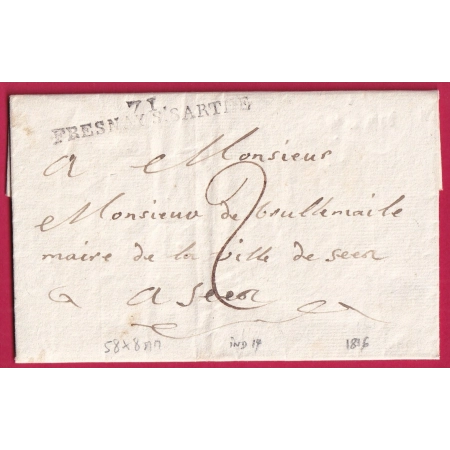 71
FRESNAY S SARTHE
a Monsieur
Monsieur de Brullemaile
maire de la ville de Seez
a a Seez
2
58x8mm
ind 14
1816